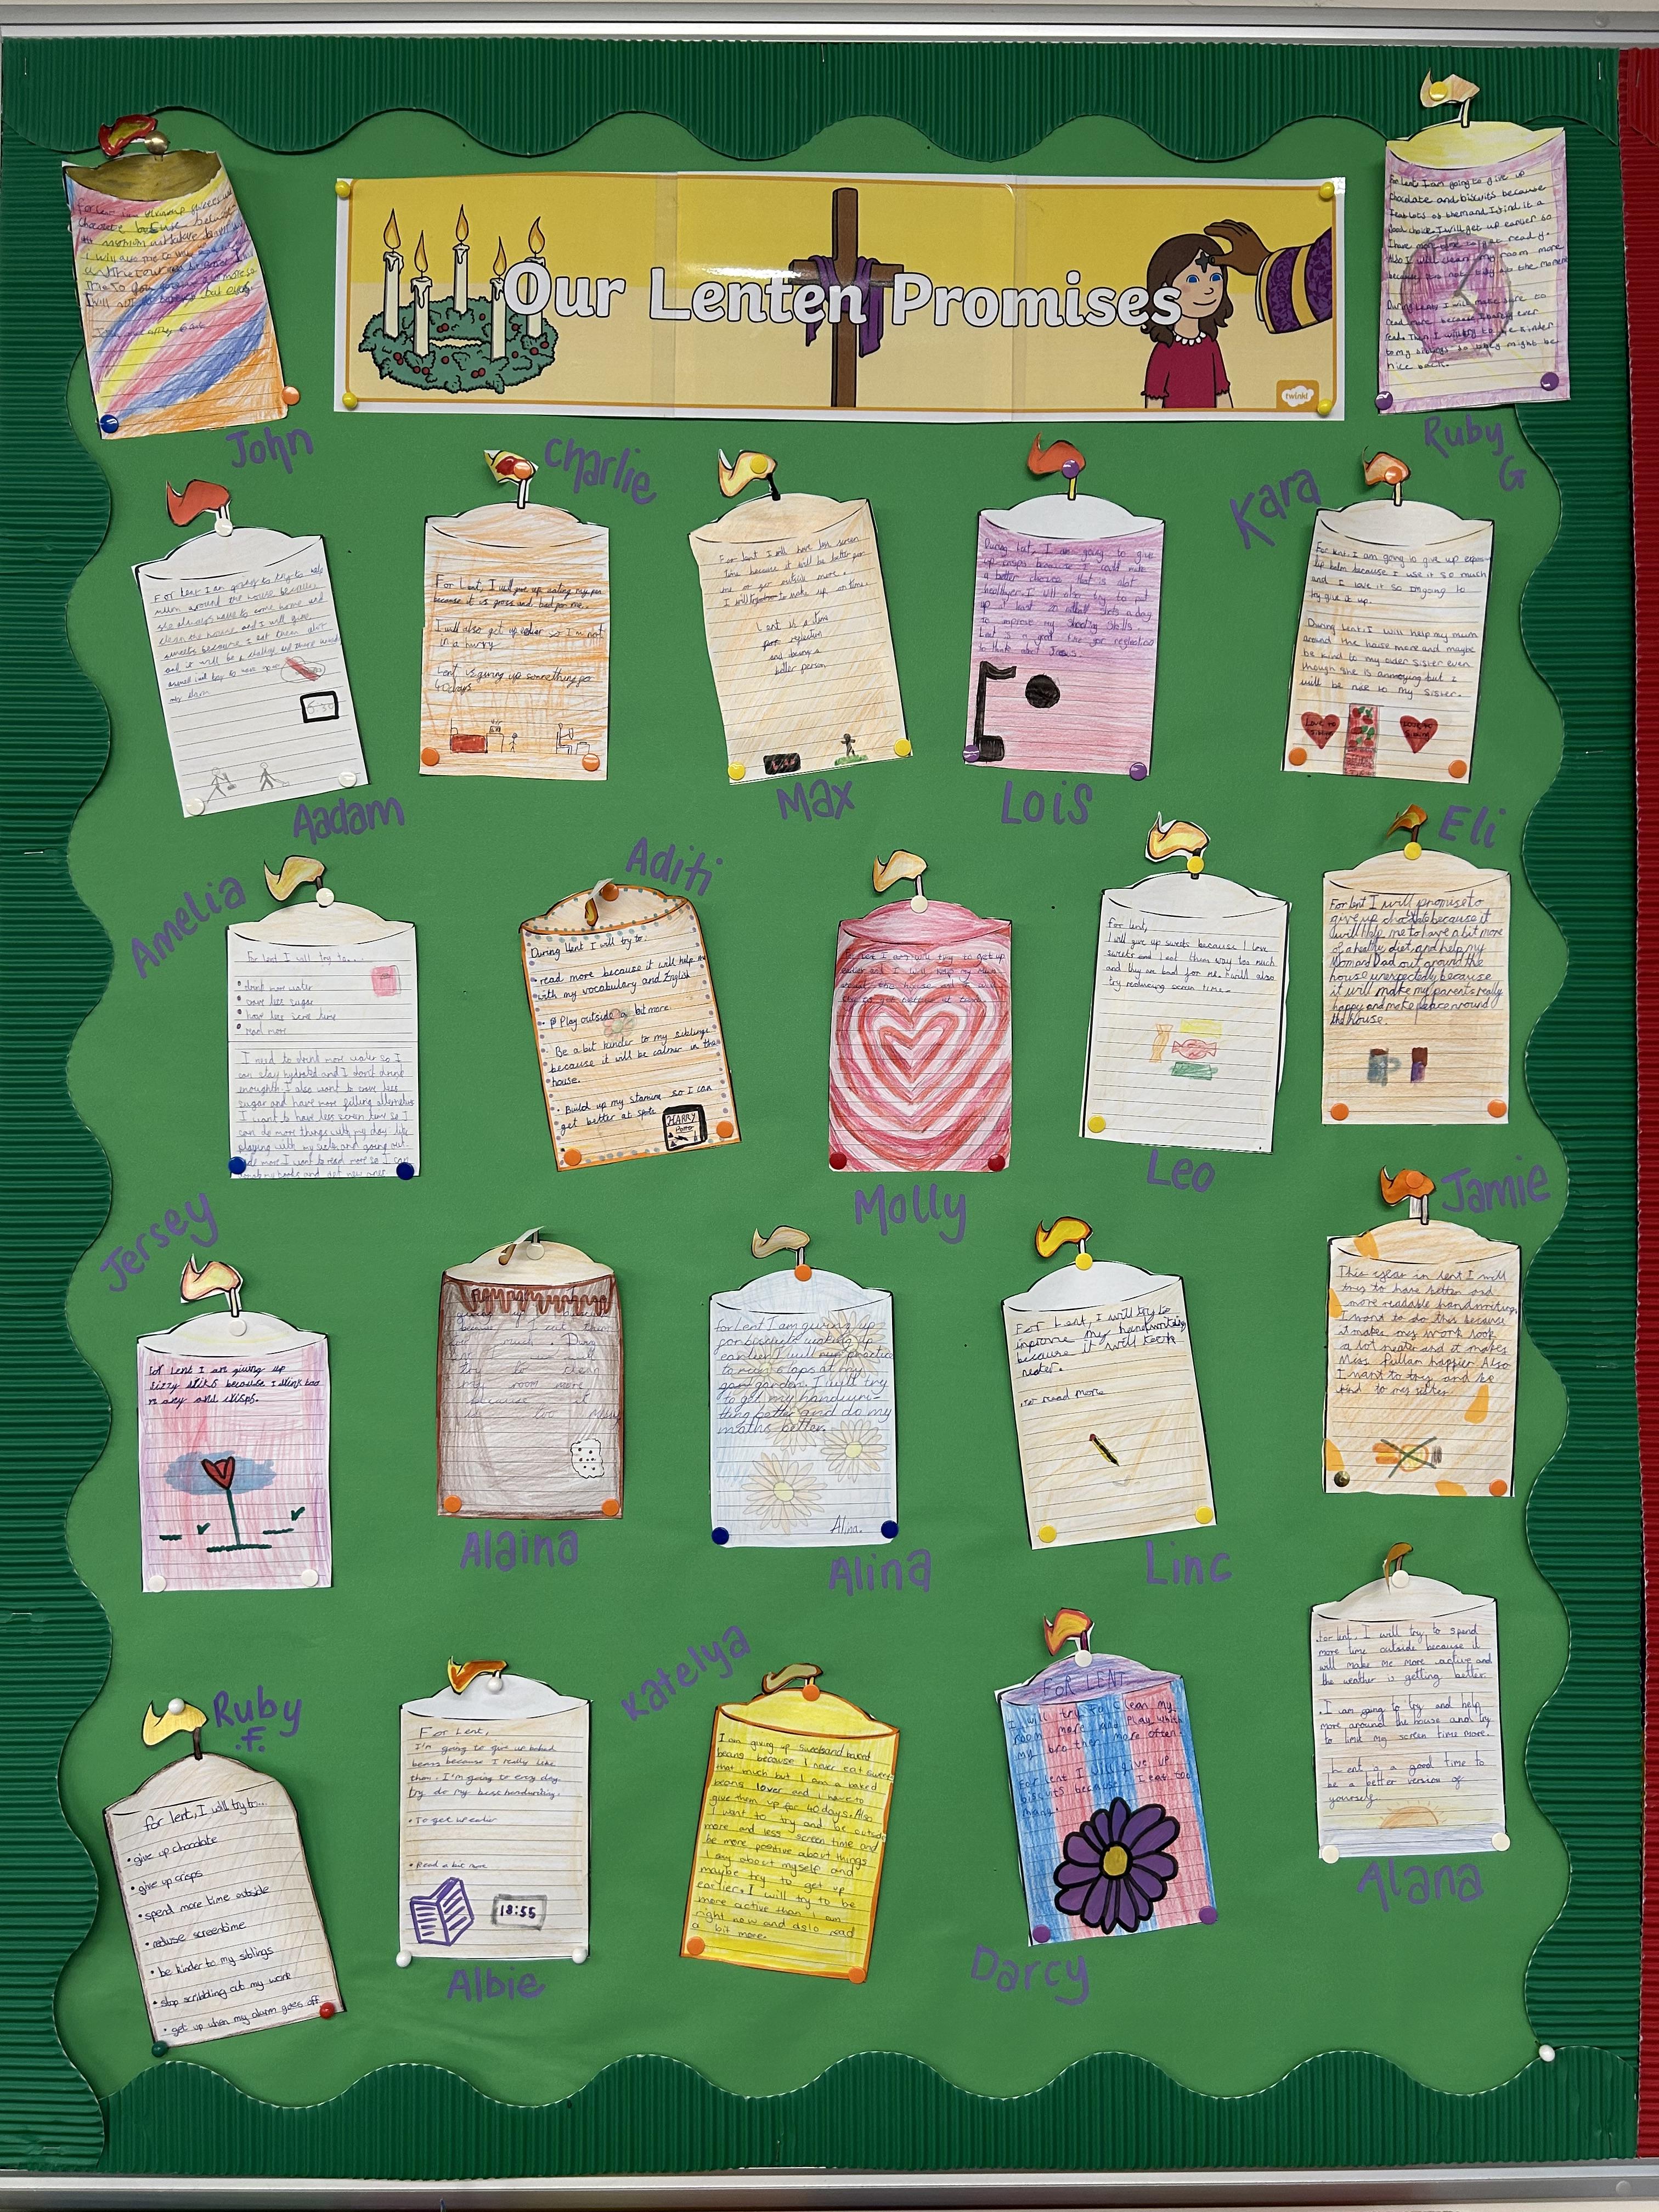 Our Lenten Promises
twinkl
John
For Lent I am going to give up
chocolate and biscuits because
I eat lots of them and I find it a
good choice. I will get up earlier so
I have more time to get ready.
Also I will clean my room more
because it is not tidy at the moment
During Lent, I will make sure to
read more because I barely ever
read. Then I will try to be kinder
to my siblings so they might be
nice back.
Ruby
G
For lent I am going to try to help
mum around the house because
she always has to come home and
clean the house and I will give
sweets because I eat them alot
and it will be a challenge
my
Aadam
Charlie
For Lent, I will give up eating my
because it is gross and bad for me.
I will also get up earlier so I'm not
in a hurry
Lent is giving up something for
40 days
For lent I will have less screen
time because it will be better for
me or get outside more.
I will to wake up on time.
Lent is a time
for reflection
and being a
better person
Max
During Lent, I am going to give
up crisps because I could make
a better choice that is alot
healthier. I will also try to put
up at least 20 netball shots a day
to improve my shooting skills.
Lent is a good time for reflection
to think about Jesus.
Lois
Kara
For lent, I am going to give up
lip balm because I use it so much
and I love it so Im going to
try give it up.
During lent, I will help my mum
around the house more and maybe
be kind to my older sister even
though she is annoying but I
will be nice to my sister.
Amelia
For lent I will try to...
drink more water
have less sugar
have less screen time
read more
I need to drink more water so I
can stay hydrated and I don't drink
enough. I also want to have less
sugar and have more filling alternatives
I want to have less screen time so I
can do more things with my day like
playing with my and going out
more I want to read more so I can
my books and get new ones
Aditi
During Lent I will try to:
read more because it will help me
with my vocabulary and English
• Play outside a bit more.
• Be a bit kinder to my siblings
because it will be calmer in the
house.
• Build up my stamina so I can
get better at sports
HARRY
Potter
For lent I am will try to get up
earlier and I will help my mum
around the house and I will
Molly
For lent,
I will give up sweets because I love
sweets and I eat them way too much
and they are bad for me. I will also
try reducing screen time.
Leo
Eli
For lent I will promise to
give up chocolate because it
will help me to have a bit more
of a healthy diet and help my
Mom and Dad out around the
house unexpectedly because
it will make my parents really
happy and make peace around
the house
Jersey
for Lent I am giving up
fizzy drinks because I drink too
many and crisps.
give up
because I eat them
much. During
try to clean
my room more
because it
is too messy
Alaina
for Lent I am giving up
for biscuits waking up
earlier I will practice
to run slaps at my
gard garden. I will try
to get my handwri-
thing better and do my
maths better.
Alina.
Alina
For Lent, I will try to
improve my handwriting
because it will look
neater.
to read more
Linc
Jamie
This year in lent I will
try to have better and
more readable handwriting.
I want to do this because
it makes my work look
a lot neater and it makes
Miss Pullam happier. Also
I want to try and be
kind to my sister.
Ruby
F.
for lent, I will try to...
• give up chocolate
• give up crisps
• spend more time outside
• reduse screentime
• be kinder to my siblings
• stop scribbling out my work
• get up when my alarm goes off
For Lent,
I'm going to give up baked
beans because I really like
them. I'm going to every day
try do my best handwriting.
• To get up earlier
• Read a bit more
18:55
Albie
Katelya
I am giving up sweets and baked
beans because I never eat sweets
that much but I am a baked
beans lover and I have to
give them up for 40 days. Also
I want to try and be outside
more and less screen time and
be more positive about things
I say about myself and
maybe try to get up
earlier. I will try to be
more active than I am
right now and also read
a bit more.
FOR LENT
I will try to clean my
room more and play with
my brother more often.
For lent I will give up
biscuits because I eat too
many.
Darcy
for lent, I will try to spend
more time outside because it
will make me more active and
the weather is getting better.
I am going to try and help
more around the house and try
to limit my screen time more.
Lent is a good time to
be a better version of
yourself.
Alana